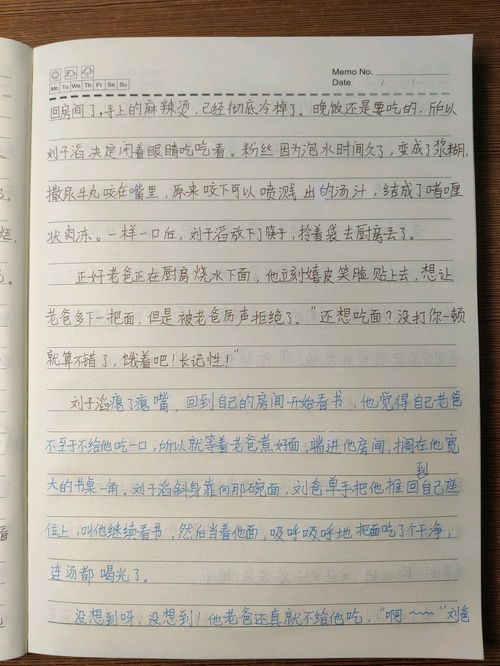 Memo No.
Mo Tu We Th Fr Sa Su
Date / /
回房间了,手上的麻辣烫,已经彻底冷掉了。晚饭还是要吃的.所以
刘子滔决定闭着眼睛吃吃看。粉丝因为泡水时间久了,变成了浆糊,
撒尿牛丸咬在嘴里,原来咬下可以喷溅出的汤汁,结成了啫喱
状肉冻。一样一口后,刘子滔放下了筷子,拎着袋去厨房丢了。
正好老爸正在厨房烧水下面,他立刻嬉皮笑脸贴上去,想让
老爸多下一把面,但是被老爸厉声拒绝了。"还想吃面?没打你一顿
就算不错了,饿着吧!长记性!"
刘子滔瘪了瘪嘴,回到自己的房间开始看书,他觉得自己老爸
不至于不给他吃一口,所以就等着老爸煮好面,端进他房间,搁在他宽
大的书桌一角.刘子滔斜身靠向那碗面,刘爸单手把他推回到自己座
位上,叫他继续看书,然后当着他面,吸呼吸呼地把面吃了个干净,
连汤都喝光了。
没想到呀,没想到!他老爸还真就不给他吃,"啊~~~"刘爸